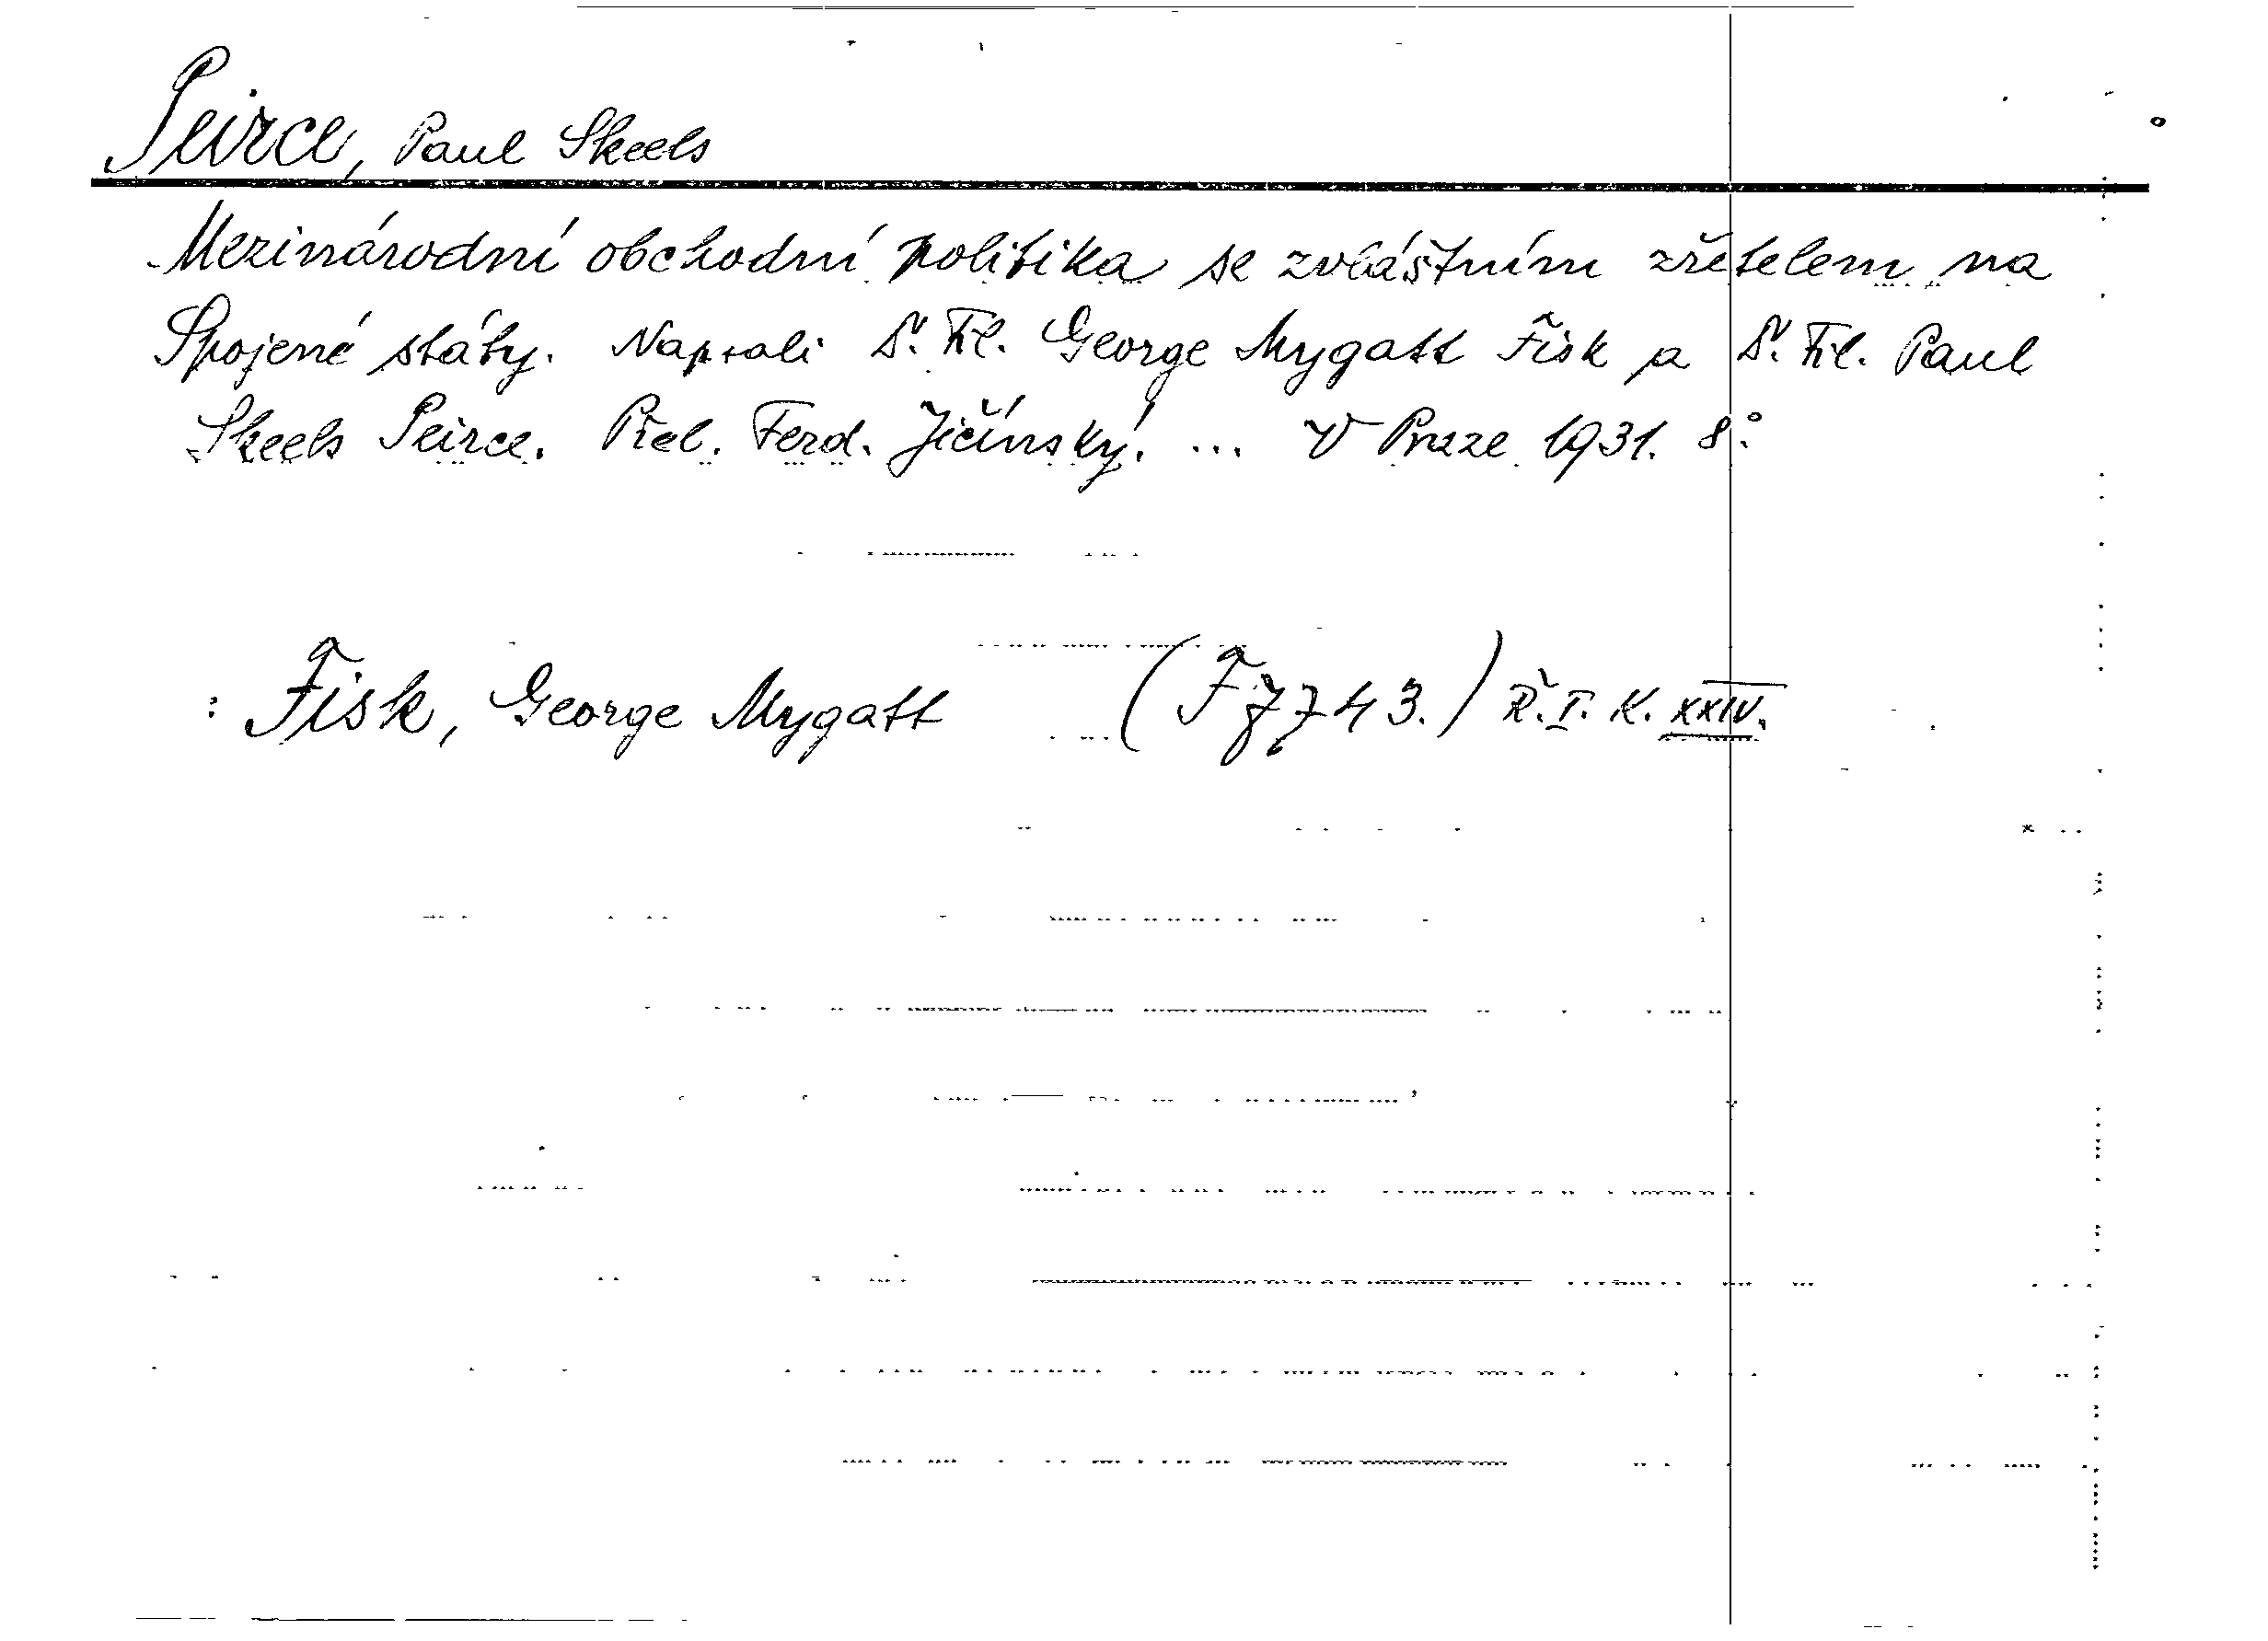 Peirce, Paul Skeels
Mezinárodní obchodní politika se zvláštním zřetelem na
Spojené státy. Napsali Dr. Fil. George Mygatt Fisk a Dr. Fil. Paul
Skeels Peirce. Přel. Ferd. Jičínský. ... V Praze 1931. 8°.
: Fisk, George Mygatt (F 7743.) Ř. I. K. XXIV.